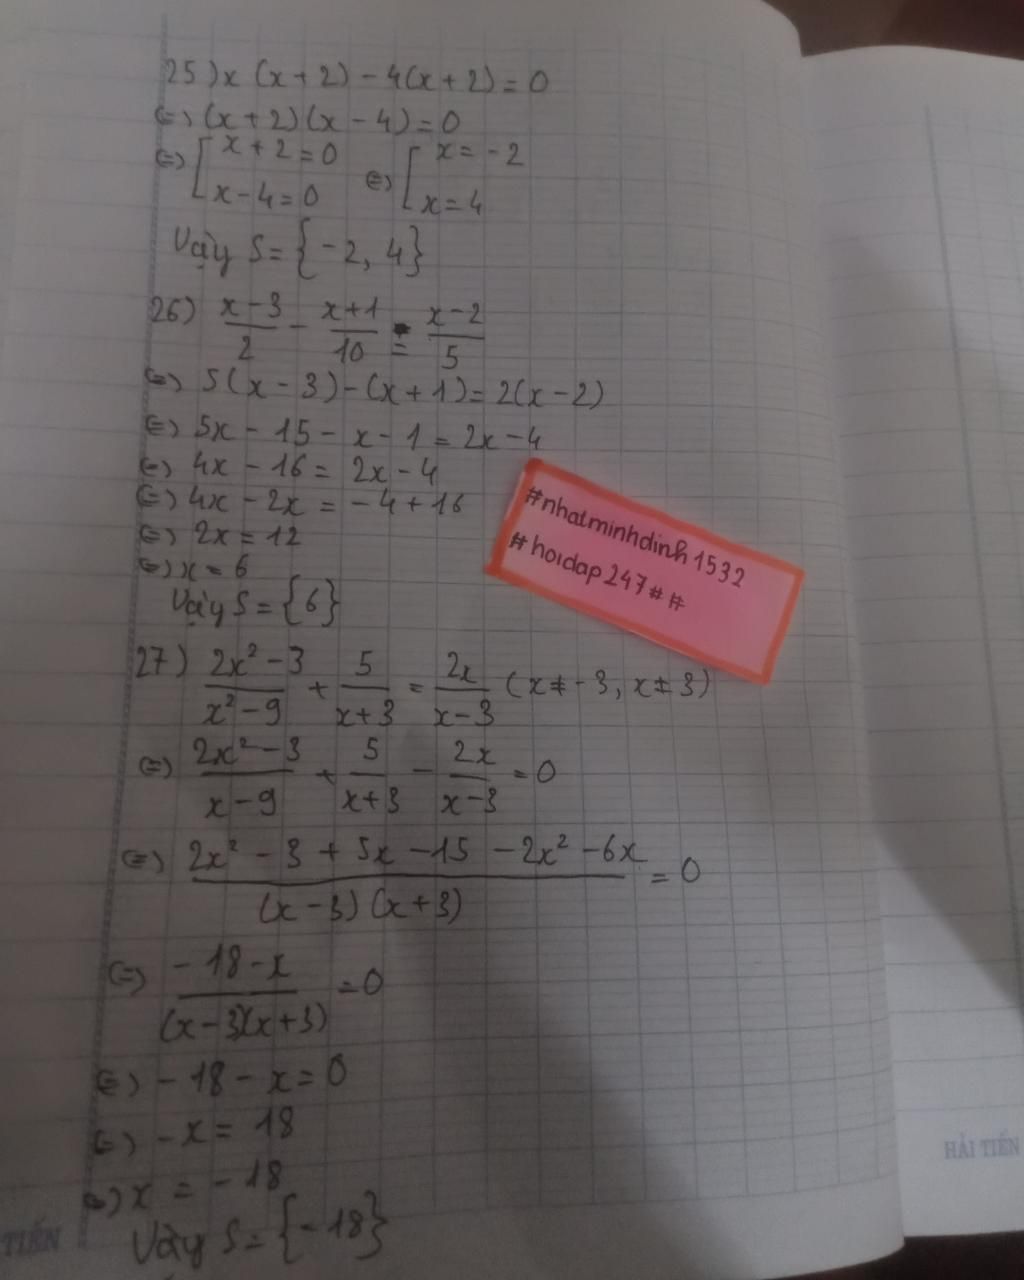 25) x (x + 2) - 4(x + 2) = 0
(=) (x + 2) (x - 4) = 0
(=) [ x + 2 = 0 (=) [ x = - 2
x - 4 = 0 x = 4
Vậy S = { - 2, 4 }
26) x - 3 / 2 - x + 1 / 10 = x - 2 / 5
(=) 5(x - 3) - (x + 1) = 2(x - 2)
(=) 5x - 15 - x - 1 = 2x - 4
(=) 4x - 16 = 2x - 4
(=) 4x - 2x = - 4 + 16
(=) 2x = 12
(=) x = 6
Vậy S = { 6 }
#nhatminhdinh1532
#hoidap247##
27) 2x² - 3 / x² - 9 + 5 / x + 3 = 2x / x - 3 (x ≠ - 3, x ≠ 3)
(=) 2x² - 3 / x - 9 + 5 / x + 3 - 2x / x - 3 = 0
(=) 2x² - 3 + 5x - 15 - 2x² - 6x / (x - 3) (x + 3) = 0
(=) - 18 - x / (x - 3)(x + 3) = 0
(=) - 18 - x = 0
(=) - x = 18
(=) x = - 18
Vậy S = { - 18 }
HẢI TIẾN
TIẾN